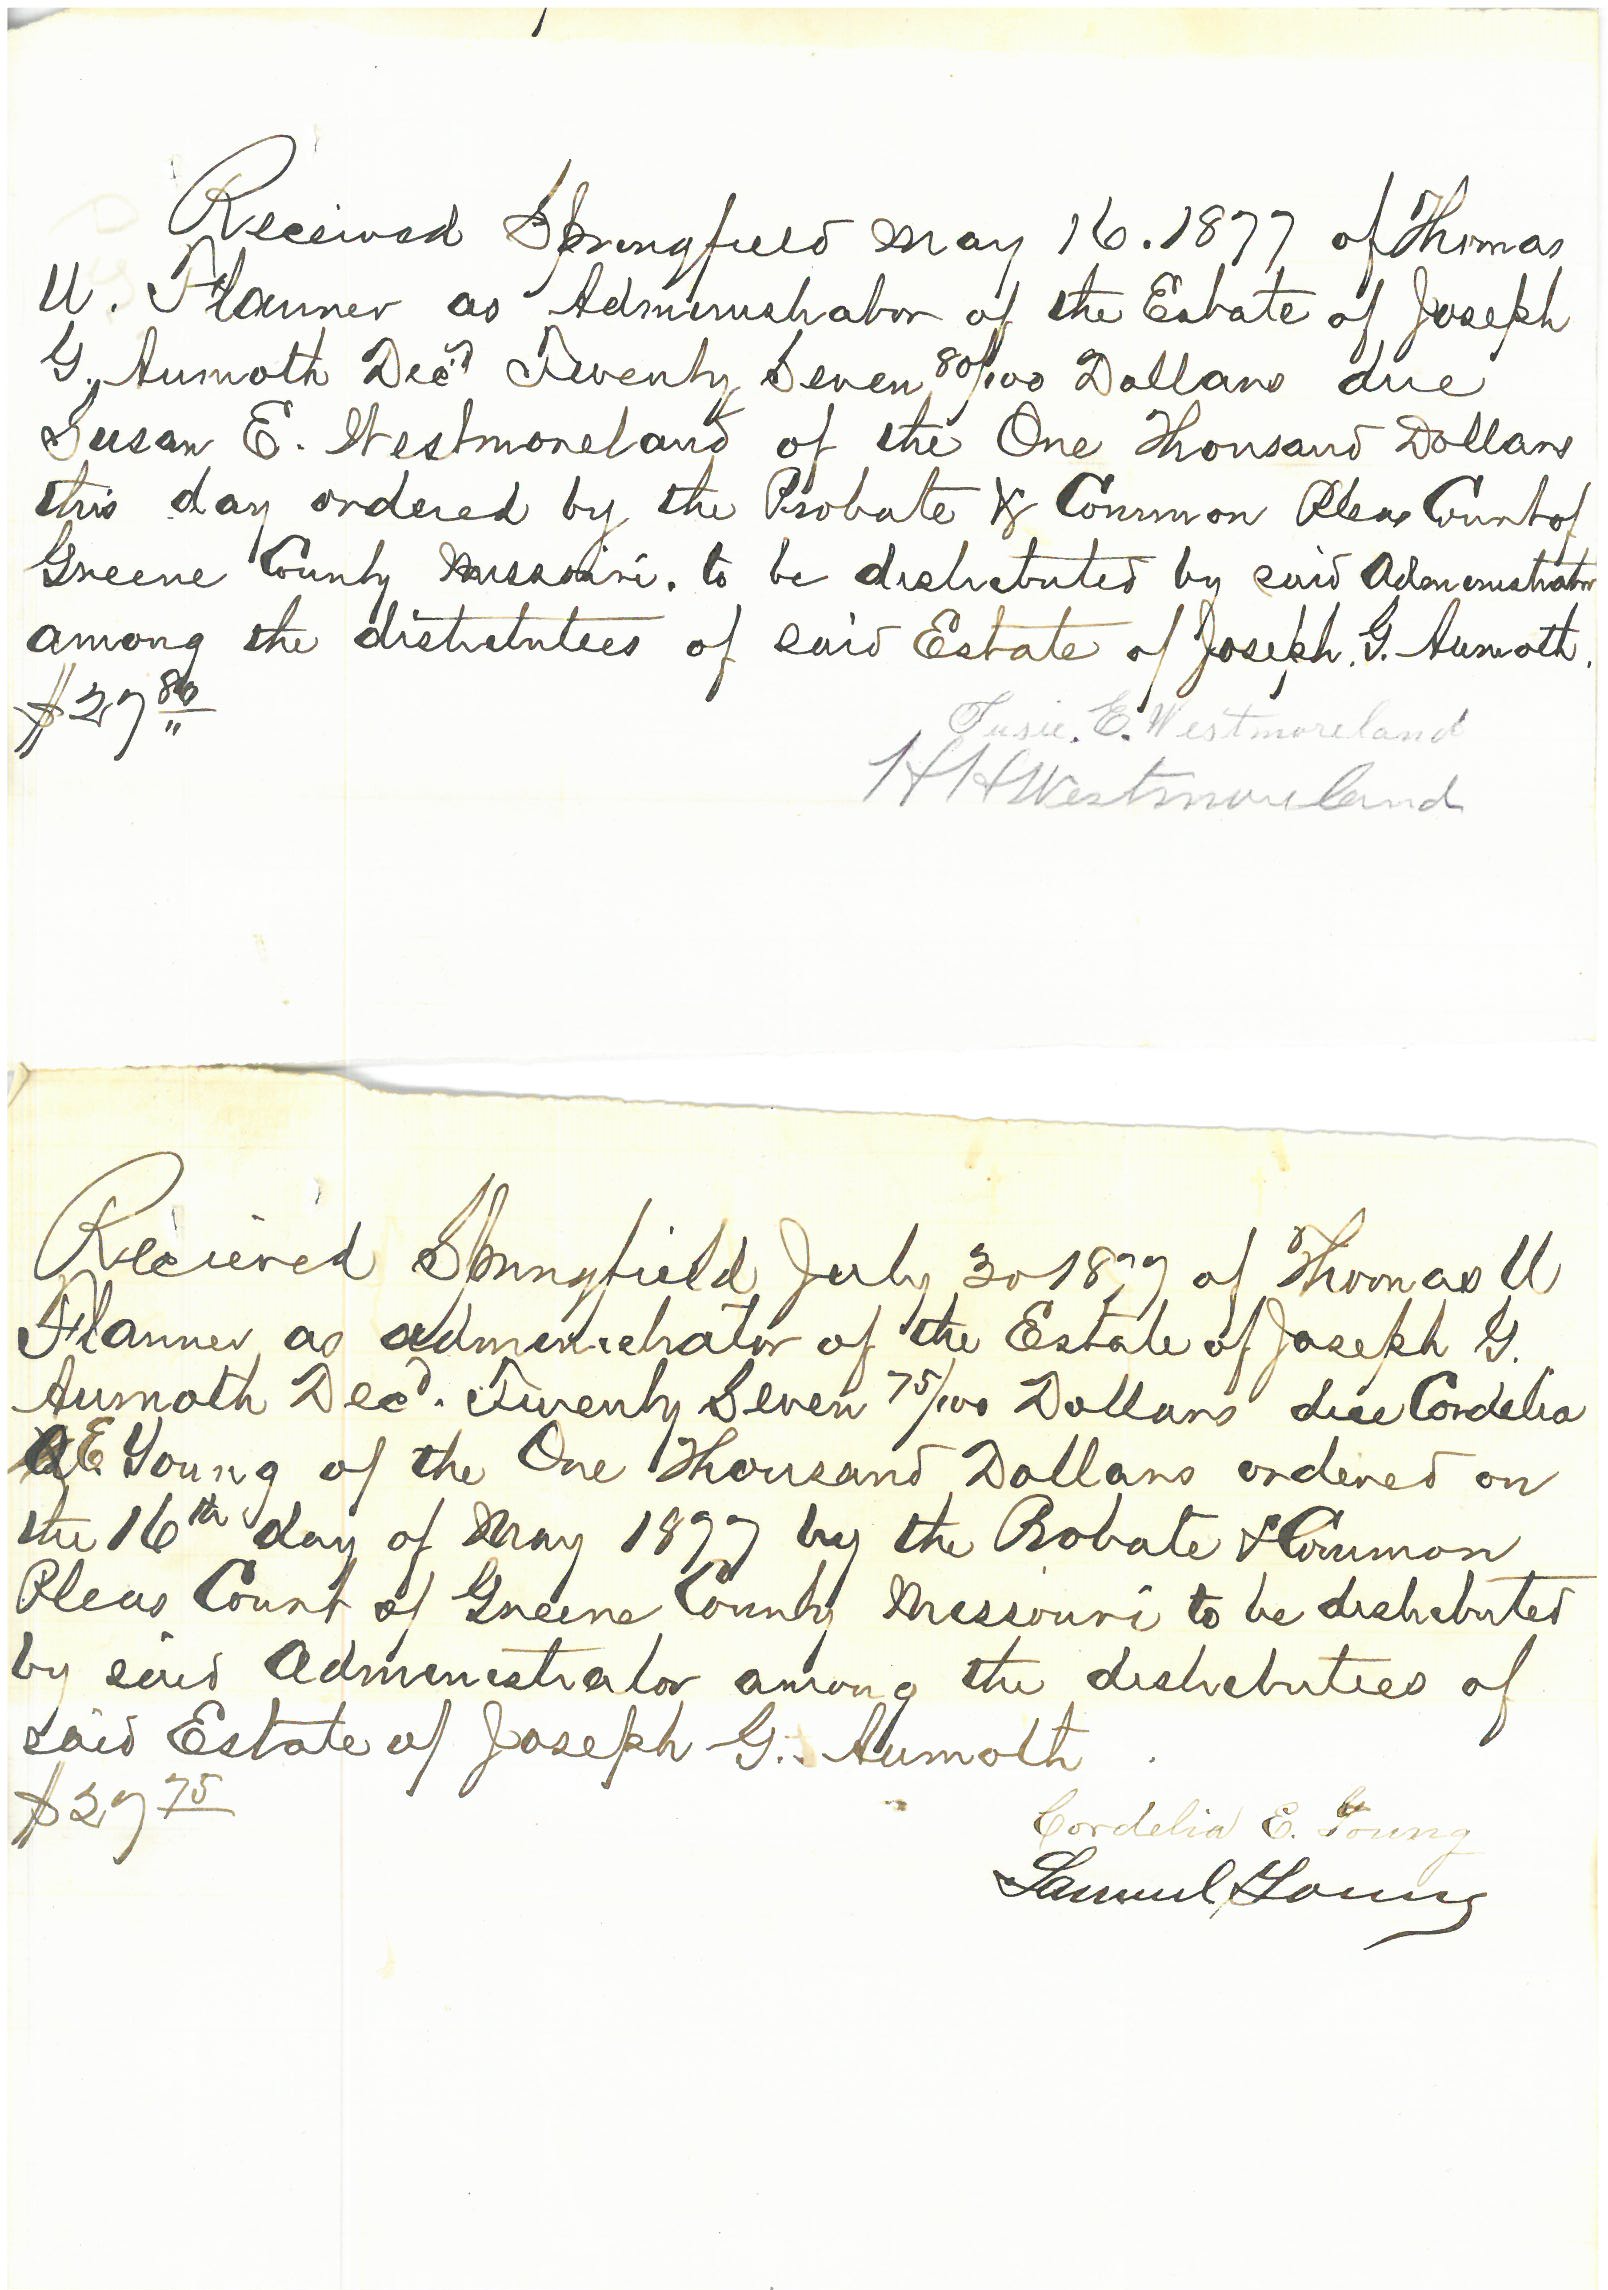 Received Springfield May 16. 1877 of Thomas
U. Flanner as Administrator of the Estate of Joseph
G. Aumoth Decd Twenty Seven 80/100 Dollars due
Susan E. Westmoreland of the One Thousand Dollars
this day ordered by the Probate & Common Pleas Court of
Greene County Missouri. to be distributed by said Administrator
among the distributees of said Estate of Joseph. G. Aumoth.
$27 80
Susie. E. Westmoreland
H H Westmoreland
Received Springfield July 30 1877 of Thomas U
Flanner as administrator of the Estate of Joseph G.
Aumoth Decd. Twenty Seven 75/100 Dollars due Cordelia
E Young of the One Thousand Dollars ordered on
the 16th day of May 1877 by the Probate & Common
Pleas Court of Greene County Missouri to be distributed
by said Administrator among the distributees of
said Estate of Joseph G. Aumoth
$27 75
Cordelia E. Young
Samuel Young